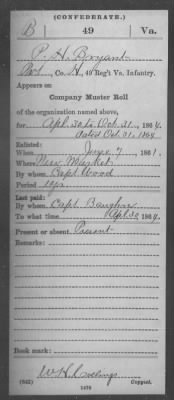 (CONFEDERATE.)
B 49 Va.
P. H. Bryant
Pvt, Co. H, 49 Reg't Va. Infantry.
Appears on
Company Muster Roll
of the organization named above,
for Apl. 30 to Oct. 31, 1864.
dated Oct. 31, 1864
Enlisted:
When June 7, 1861.
Where New Market
By whom Capt Wood
Period 1 yr.
Last paid:
By whom Capt. Baughn
To what time Apl 30, 1864.
Present or absent Present
Remarks:
Book mark:
(642) Copyist.